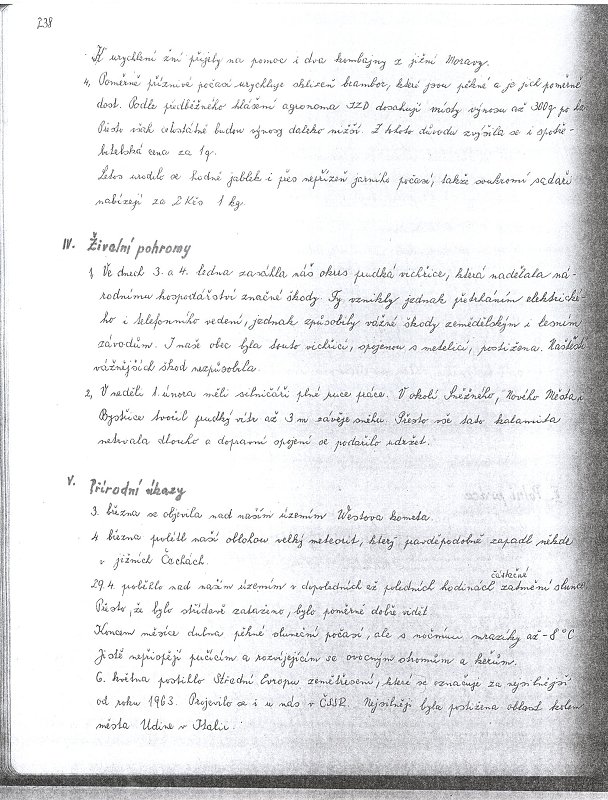 238
K urychlení žní přijely na pomoc i dva kombajny z jižní Moravy.
4, Poměrně příznivé počasí urychluje sklizeň brambor, které jsou pěkné a je jich poměrně
dost. Podle předběžného hlášení agronoma JZD dosahují místy výnosu až 300q po ha
Přesto však celostátně budou výnosy daleko nižší. Z tohoto důvodu zvýšila se i spotře-
bitelská cena za 1q.
Letos urodilo se hodně jablek i přes nepřízeň jarního počasí, takže soukromí sadaři
nabízejí za 2 Kčs 1 kg.
IV. Živelní pohromy
1, Ve dnech 3. a 4. ledna zasáhla náš okres prudká vichřice, která nadělala ná-
rodnímu hospodářství značné škody. Ty vznikly jednak přetrháním elektrické-
ho i telefonního vedení, jednak způsobily vážné škody zemědělským i lesním
závodům. I naše obec byla touto vichřicí, spojenou s metelicí, postižena. Naštěstí
vážnějších škod nezpůsobila.
2, V neděli 1. února měli silničáři plné ruce práce. V okolí Sněžného, Nového Města,
Bystřice tvořil prudký vítr až 3 m závěje sněhu. Přesto vše tato kalamita
netrvala dlouho a dopravní spojení se podařilo udržet.
V. Přírodní úkazy
3. března se objevila nad naším územím Westova kometa.
4 března prolétl naší oblohou velký meteorit, který pravděpodobně zapadl někde
v jižních Čechách.
částečné
29.4. proběhlo nad naším územím v dopoledních až poledních hodinách zatmění slunce
Přesto, že bylo střídavě zataženo, bylo poměrně dobře vidět.
Koncem měsíce dubna pěkné sluneční počasí, ale s nočními mrazíky až -8 °C
Jistě nepřispějí pučícím a rozvíjejícím se ovocným stromům a keřům.
6. května postihlo Střední Evropu zemětřesení, které se označuje za nejsilnější
od roku 1963. Projevilo se i u nás v ČSSR. Nejsilněji byla postižena oblast kolem
města Udine v Itálii.